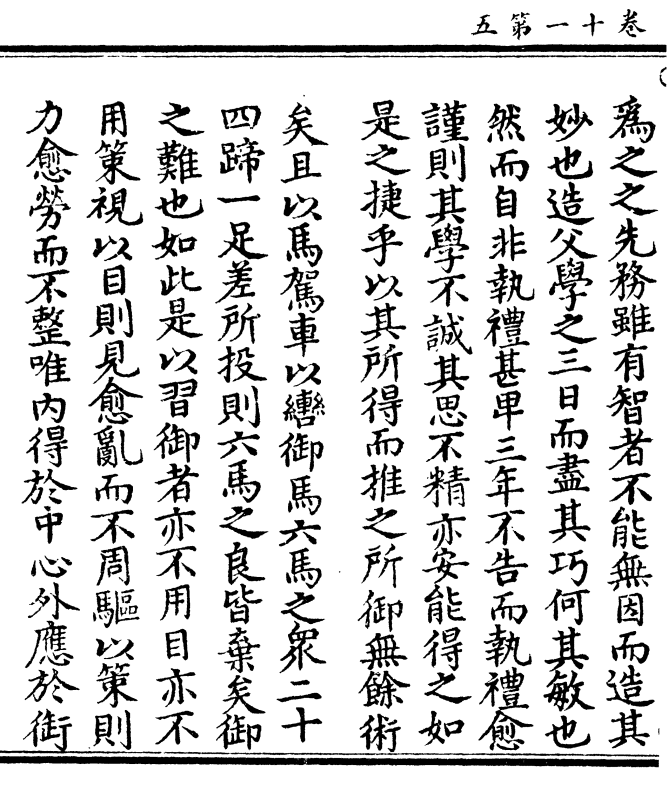 卷十一第五
為之之先務雖有智者不能無因而造其
妙也造父學之三日而盡其巧何其敏也
然而自非執禮甚卑三年不告而執禮愈
謹則其學不誠其思不精亦安能得之如
是之捷乎以其所得而推之所御無餘術
矣且以馬駕車以轡御馬六馬之眾二十
四蹄一足差所投則六馬之良皆棄矣御
之難也如此是以習御者亦不用目亦不
用策視以目則見愈亂而不周驅以策則
力愈勞而不整唯內得於中心外應於銜